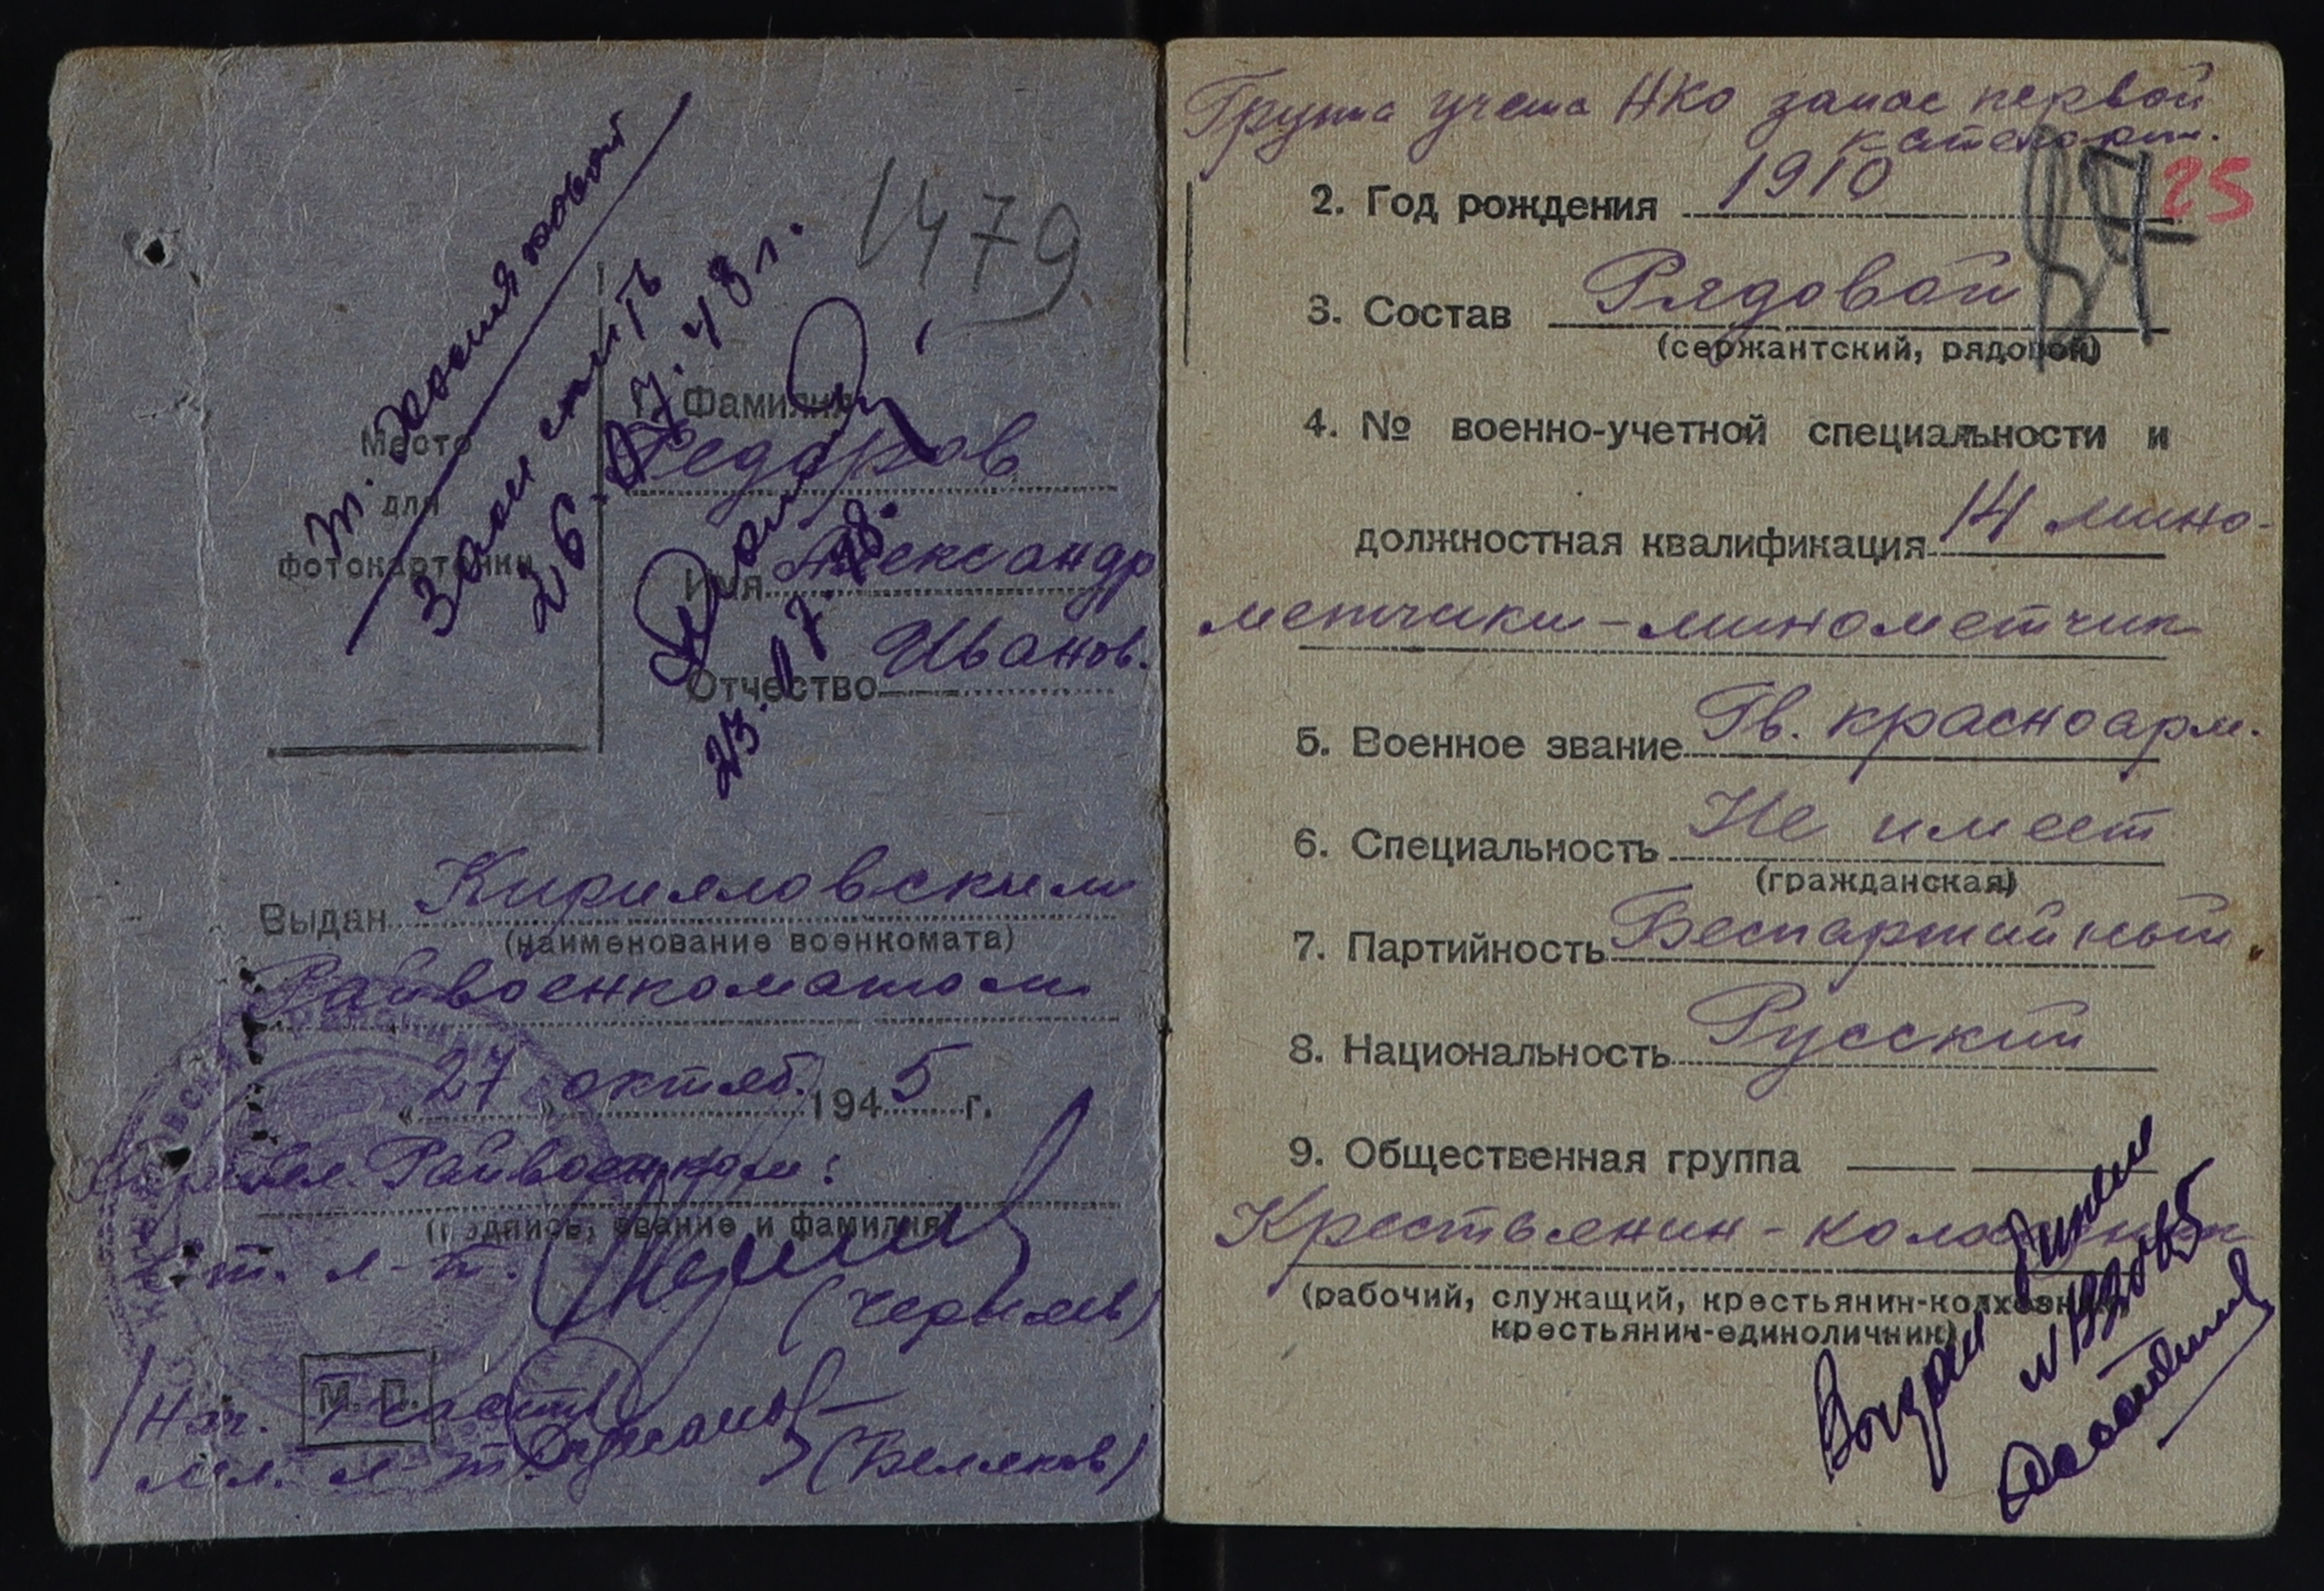 1479
Место
для
фотокарточки
т. 
Зачислить
26.17.48 г.
1. Фамилия
Федоров
Имя Александр
Отчество Иванов.
Выдан Кирилловским
(наименование военкомата)
Райвоенкоматом
«27» октяб. 1945 г.
Кирилл. Райвоенком:
(подпись, звание и фамилия)
Ст. л-т.
(Черняев)
М. П.
Нач. 1 части
мл. л-т.
(Беляков)
Группа учета НКО запас первой
категории.
25
2. Год рождения 1910
3. Состав Рядовой
(сержантский, рядовой)
4. № военно-учетной специальности и
должностная квалификация 14 мино-
метчики-минометчик
5. Военное звание Гв. красноарм.
6. Специальность Не имеет
(гражданская)
7. Партийность Беспартийный
8. Национальность Русский
9. Общественная группа
Крестьянин-колхозник
(рабочий, служащий, крестьянин-колхозник,
крестьянин-единоличник)